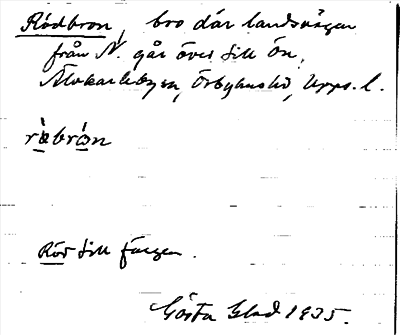 Rödbron, bro där landsvägen
från N. går över till Ön,
Älvkarlebyn, Örbyhushd, Upps. l.
rö̀brón
Röd till färgen.
Gösta Glad 1935.